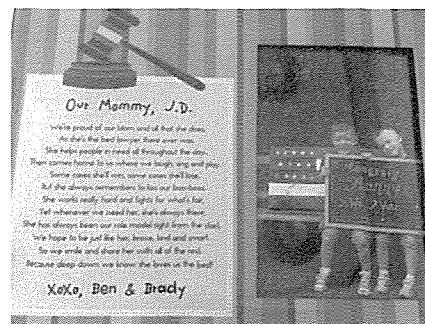 Our Mommy, J.D.
We're proud of our Mom and all that she does,
As she's the best lawyer there ever was.
She helps people in need all throughout the day,
Then comes home to us where we laugh, sing and play.
Some cases she'll win, some cases she'll lose,
But she always remembers to kiss our
She works really hard and fights for what's fair,
Yet whenever we need her, she's always there.
She has always been our role model right from the start,
We hope to be just like her, brave, kind and smart.
So we smile and share her with all of the rest,
Because deep down we know she loves us the best!
XoXo, Ben & Brady